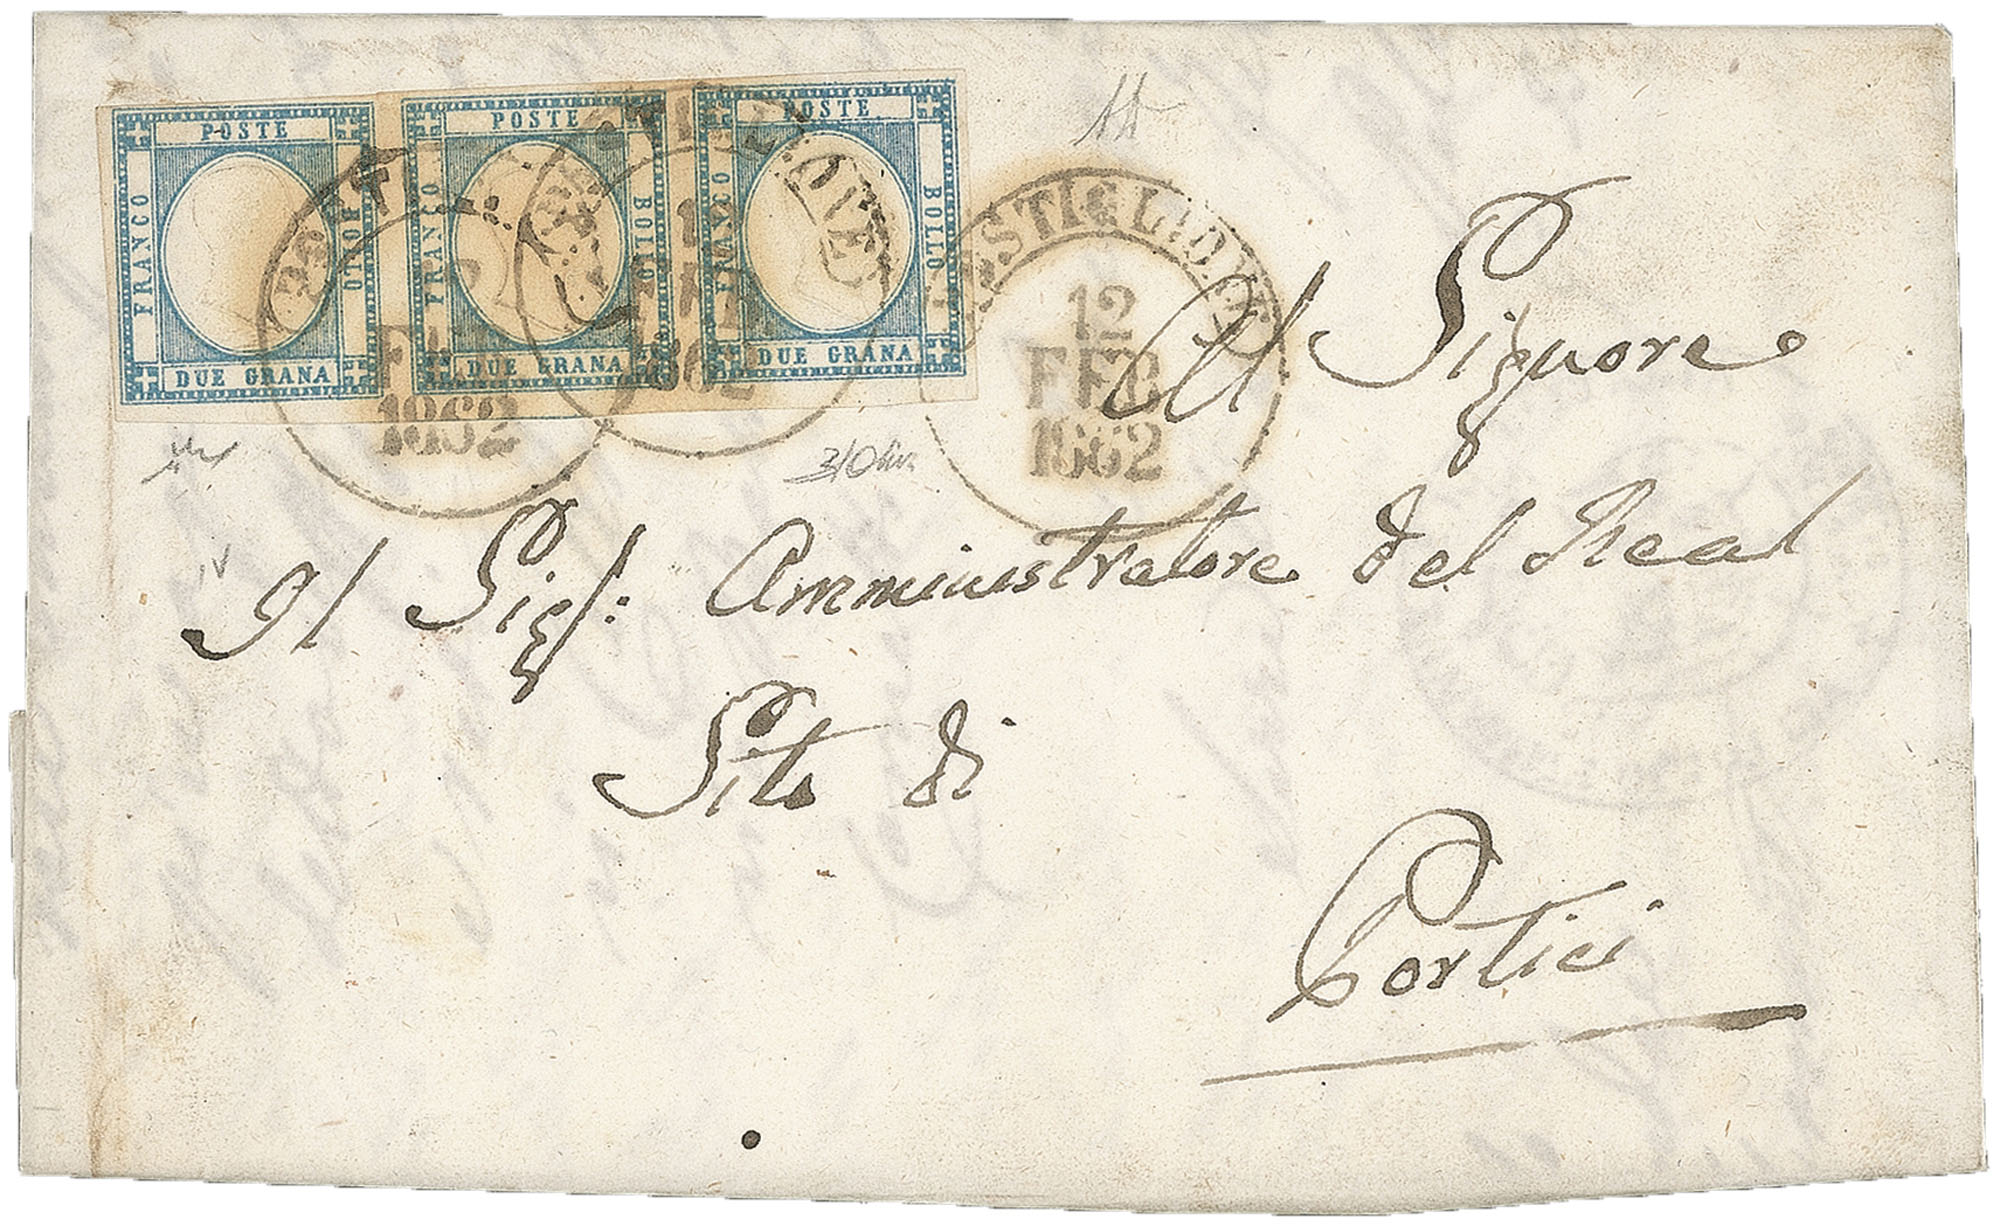 POSTE
FRANCO
BOLLO
DUE GRANA
POSTE
FRANCO
BOLLO
DUE GRANA
POSTE
FRANCO
BOLLO
DUE GRANA
1862
12
FEB
1862
Al Signore
Il Sigr: Amministratore del Real
Sito di
Portici